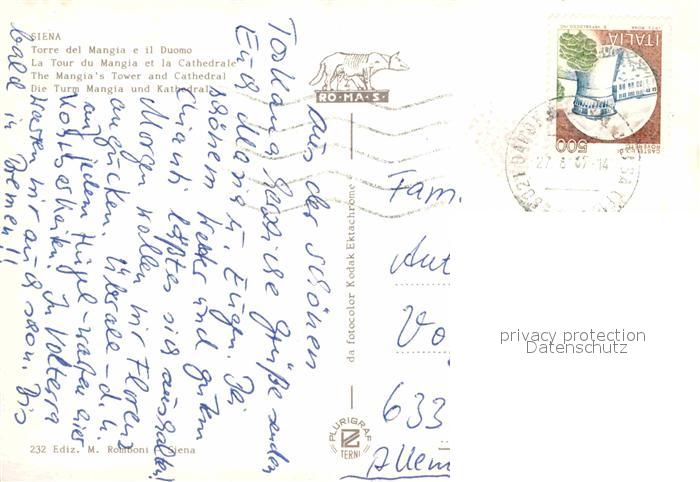 SIENA
Torre del Mangia e il Duomo
La Tour du Mangia et la Cathedrale
The Mangia's Tower and Cathedral
Die Turm Mangia und Kathedral
RO·MA·S·
ITALIA
500
27 6 87-14
Aus der schönen
Toskana herzliche Grüße senden
Euch Maria u. Eugen. Bei
schönem Wetter und gutem
Chianti läßt es sich aushalten!
Morgen wollen wir Florenz
angucken. Überall - d. h.
auf jedem Hügel - warten hier
In Volterra
waren wir auch schon. Bis
bald in Bremen!!
da fotocolor Kodak Ektachrome
Fam.
Aut
Vo
633
Allem
privacy protection
Datenschutz
PLURIGRAF
TERNI
232 Ediz. M. Romboni - Siena